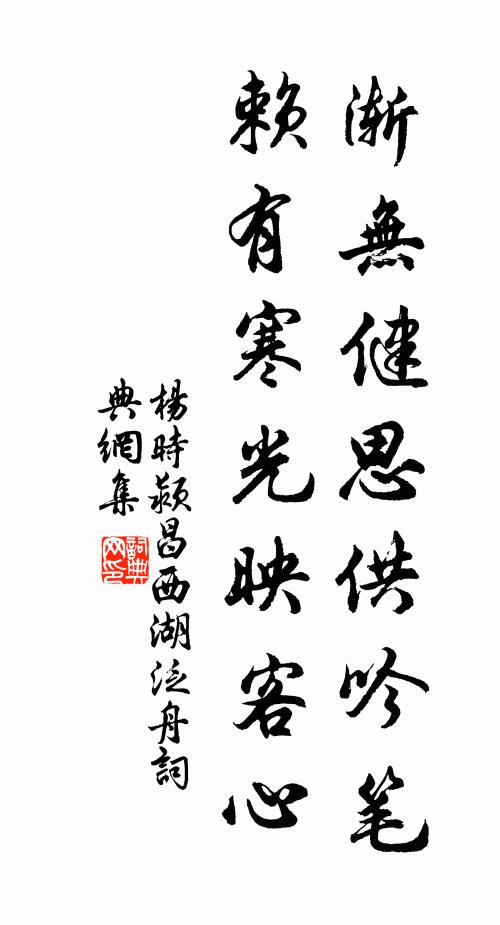 漸無健思供吟笔
賴有寒光映客心
楊時颍昌西湖泛舟詞
典網集
詞典
网印